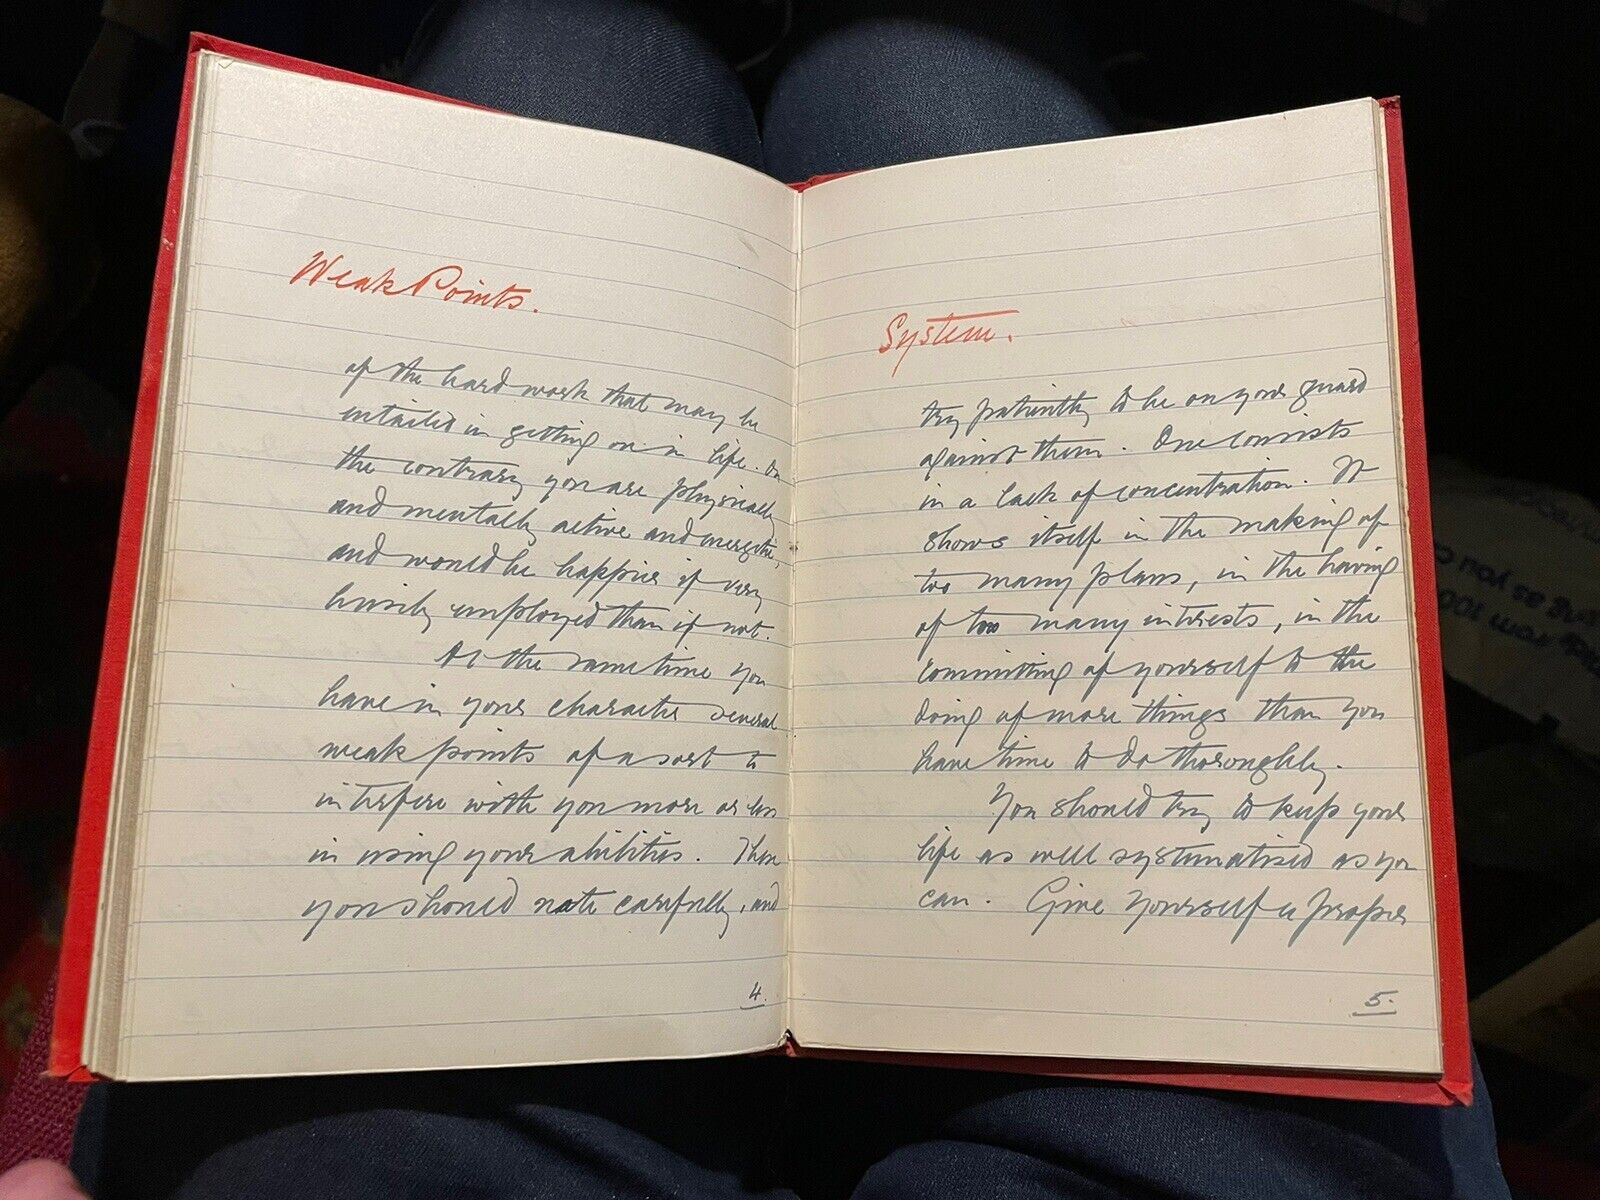 Weak Points.
of the hard work that may be
entailed in getting on in life. On
the contrary you are physically
and mentally active and energetic,
and would be happier if very
busily employed than if not.
At the same time you
have in your character several
weak points of a sort to
interfere with you more or less
in using your abilities. These
you should note carefully, and
4.
System.
try patiently to be on your guard
against them. One consists
in a lack of concentration. It
shows itself in the making of
too many plans, in the having
of too many interests, in the
committing of yourself to the
doing of more things than you
have time to do thoroughly.
You should try to keep your
life as well systematised as you
can. Give yourself a proper
5.
as you
from 100